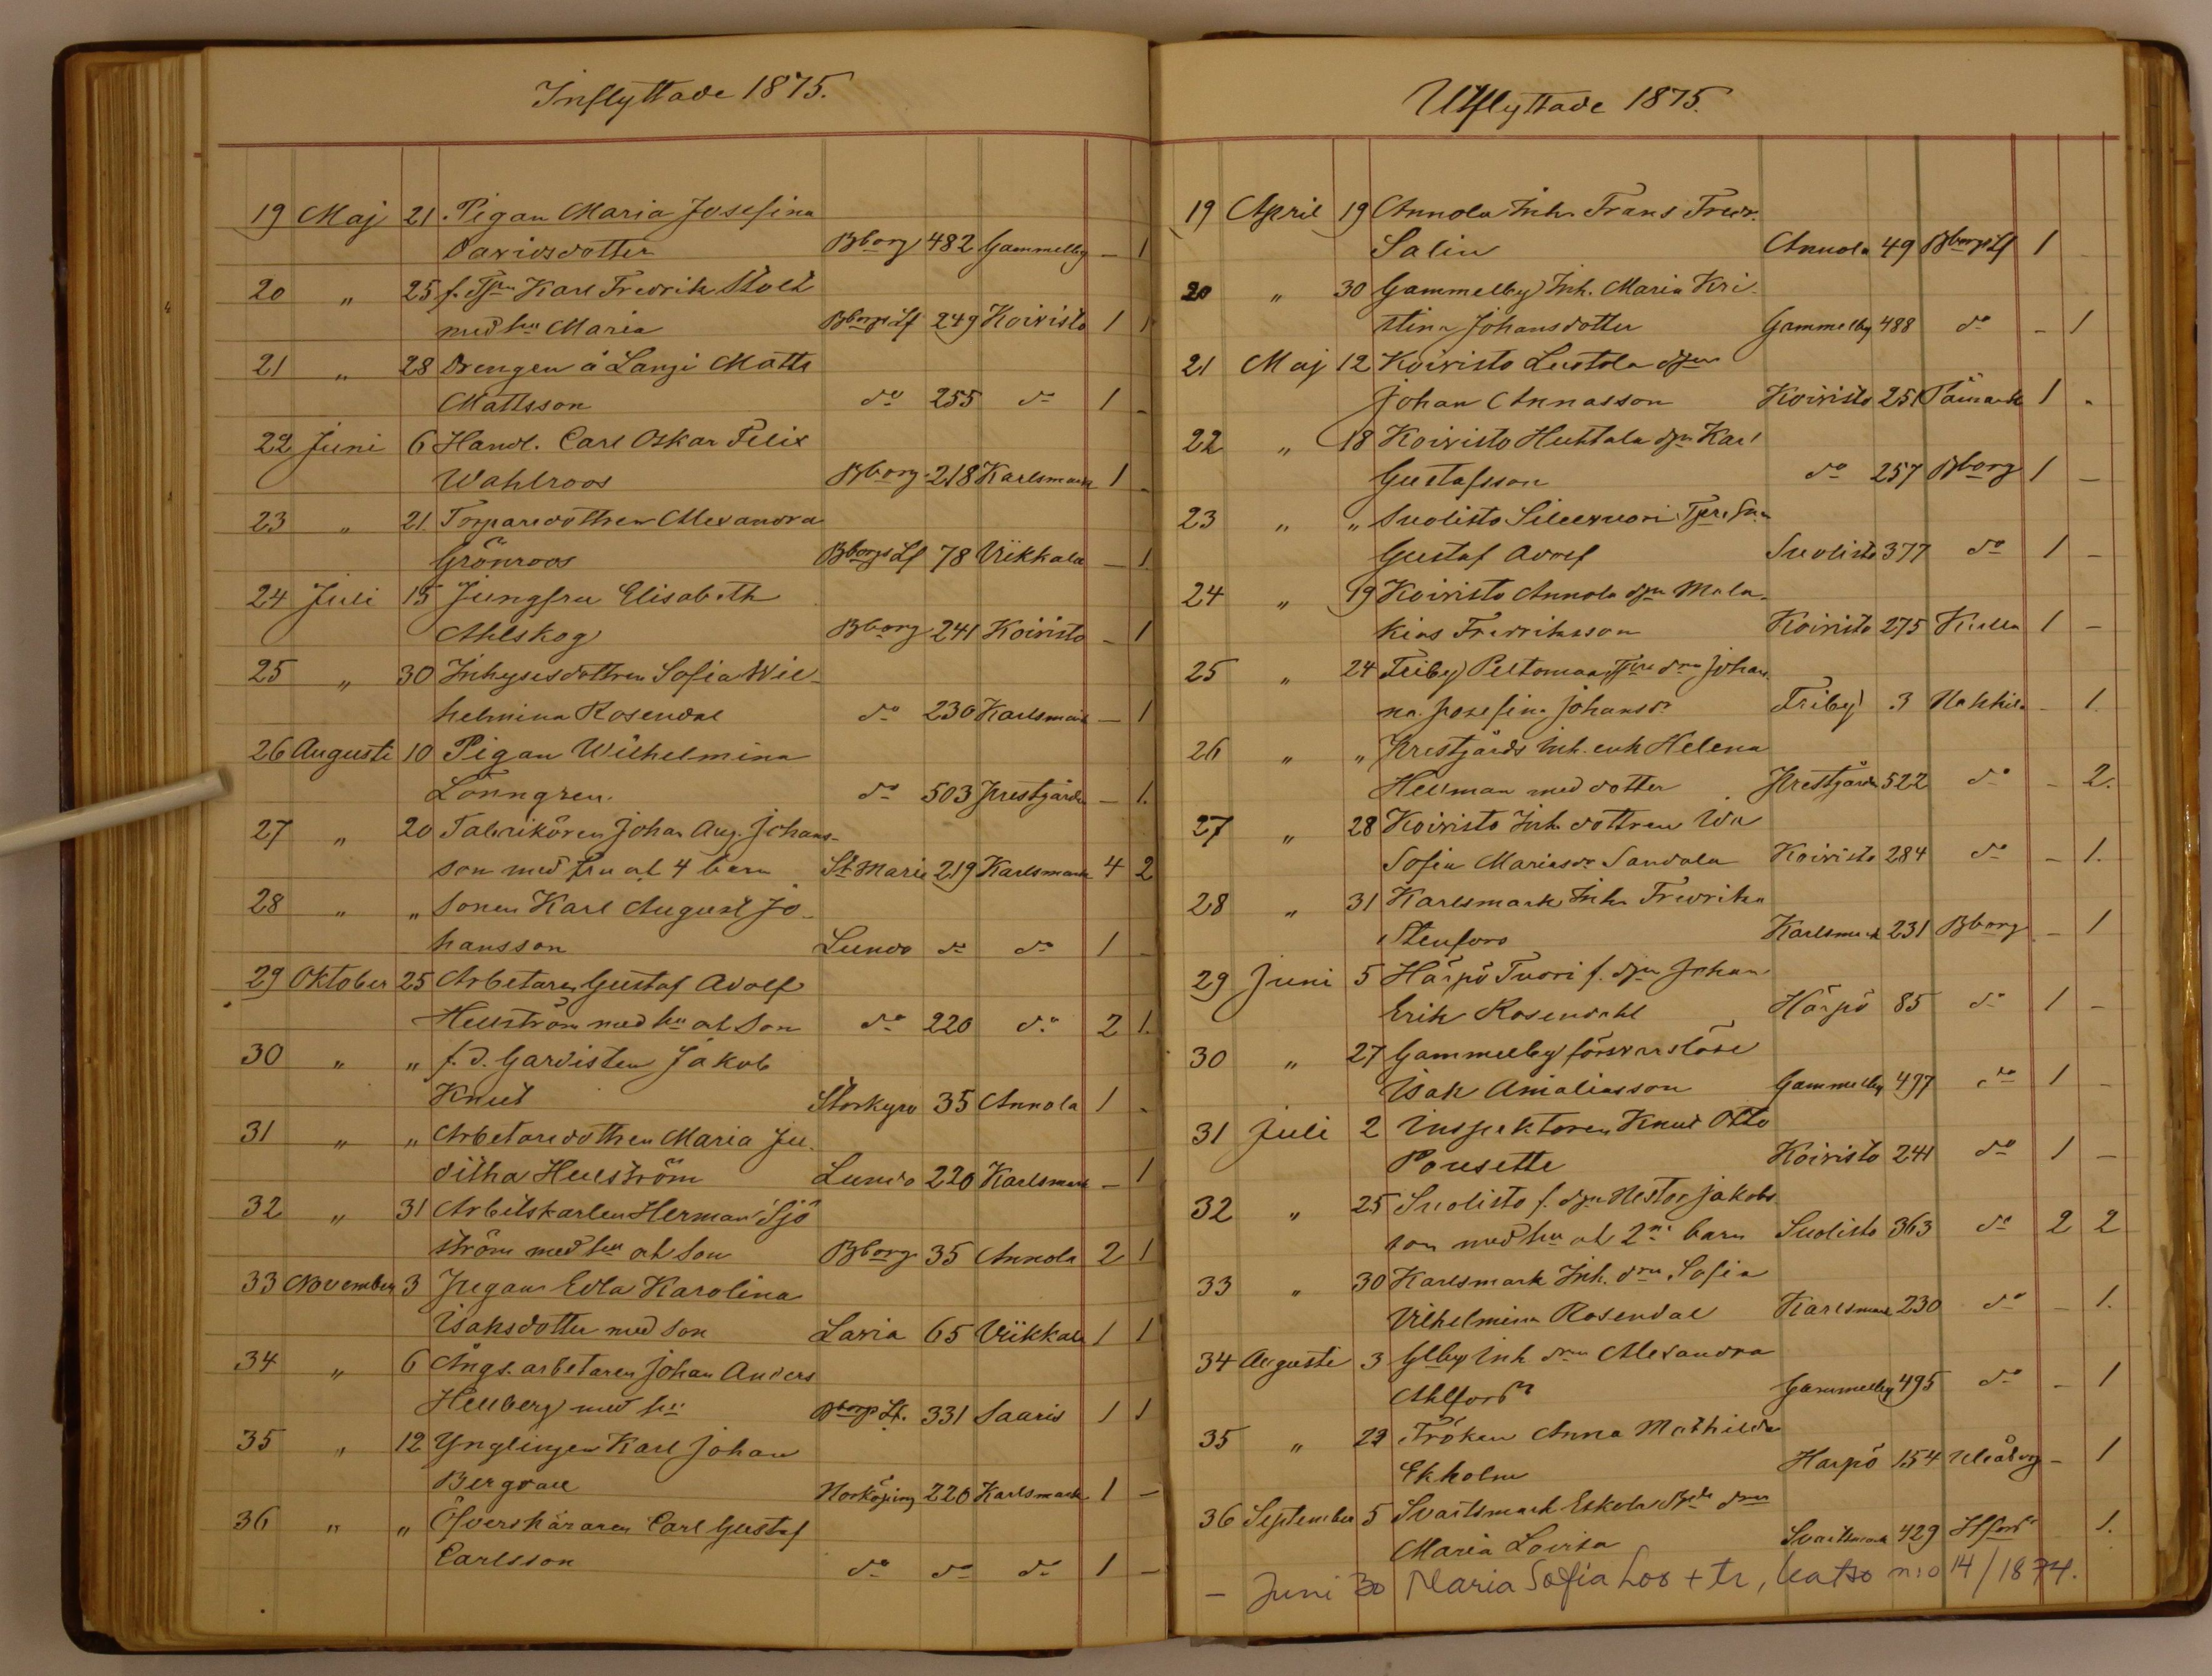 Inflyttade 1875.
19 Maj 21 Pigan Maria Josefina
Davidsdotter Bborg 482 Gammelby – 1
20 " 25 f. Karl Fredrik
med hu Maria Bborgs Lf 249 Koivisto 1 1
21 " 28 Drengen å Lanzi Matts
Mattsson do 255 do 1 –
22 Juni 6 Handl. Carl Oskar Felix
Wahlroos Bborg 218 Karlsmark 1 –
23 " 21 Torparedottren Alexandra
Grönroos Bborgs Lf 78 Viikkala – 1
24 Juli 15 Jungfru Elisabeth
Ahlskog Bborg 241 Koivisto – 1
25 " 30 Inhysesdottren Sofia Wil-
helmina Rosendal do 230 Karlsmark – 1
26 Augusti 10 Pigan Wilhelmina
Lönngren do 503 Prestgårds – 1.
27 " 20 Fabrikören Johan Aug. Johans-
son med fru at 4 barn St Marie 219 Karlsmark 4 2
28 " " Sonen Karl August Jo-
hansson Lundo do do 1 –
29 Oktober 25 Arbetaren Gustaf Adolf
Hellström med hu at son do 220 do 2 1.
30 " " f. d. Gardisten Jakob
Knut Storkyro 35 Annola 1 –
31 " " Arbetaredottren Maria Ju-
ditha Hellström Lundo 220 Karlsmark – 1
32 " 31 Arbetskarlen Herman Sjö
ström med hu at son Bborg 35 Annola 2 1
33 November 3 Pigan Edla Karolina
Isaksdotter med son Lavia 65 Viikkala 1 1
34 " 6 Ångs. arbetaren Johan Anders
Hellberg med hu Bborgs Lf. 331 Saaris 1 1
35 " 12 Ynglingen Karl Johan
Bergvall Norköping 220 Karlsmark 1 –
36 " " Öfverskäraren Carl Gustaf
Carlsson do do do 1 –
Utflyttade 1875.
19 April 19 Annola Inh. Frans Fredr.
Salin Annola 49 Bborgs Lf 1 –
20 " 30 Gammelby Inh. Maria Kri-
stina Johansdotter Gammelby 488 do – 1
21 Maj 12 Koivisto drn
Johan Annasson Koivisto 251 Påmark 1 –
22 " 18 Koivisto Huhtala drn Karl
Gustafsson do 257 Bborg 1 –
23 " " Suolisto
Gustaf Adolf Suolisto 377 do 1 –
24 " 19 Koivisto Annola drn Mala-
kias Fredriksson Koivisto 275 Kulla 1 –
25 " 24 Friby Peltomaa Johan-
na Josefina Johansdr Friby 3 Nakkila – 1
26 " " Prestgårds Inh. enk Helena
Hellman med dotter Prestgårds 522 do – 2.
27 " 28 Koivisto Inh. dottren
Sofia Mariasdr Sandala Koivisto 284 do – 1.
28 " 31 Karlsmark Inh. Fredrika
Stenfors Karlsmark 231 Bborg – 1
29 Juni 5 Härpö Tuori f. drn Johan
Erik Rosendahl Härpö 85 do 1 –
30 " 27 Gammelby försvarslöse
Isak Amaliasson Gammelby 497 do 1 –
31 Juli 2 Inspektoren Knut Otto
Pousette Koivisto 241 do 1 –
32 " 25 Suolisto f. drn Nestor Jakobs
son med hu at 2ne barn Suolisto 363 do 2 2
33 " 30 Karlsmark Inh. drn Sofia
Vilhelmina Rosendal Karlsmark 230 do – 1.
34 Augusti 3 Glby Inh. drn Alexandra
Ahlfors Gammelby 495 do – 1
35 " 23 Fröken Anna Mathilda
Ekholm Härpö 154 Uleåborg – 1
36 September 5 Svartsmark Eskola drn
Maria Lovisa Svartsmark 429 Hfors 1.
– Juni 30 Maria Sofia Loo + tr, katso n:o 14/1874.